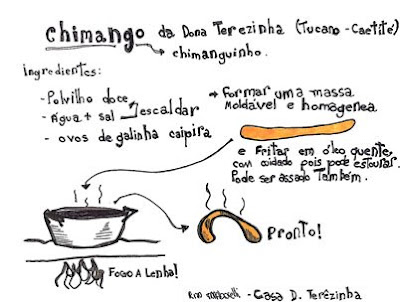 chimango da Dona Terezinha (Tucano - Caetité)
→ chimanguinho.
Ingredientes:
- Polvilho doce
- Água + sal
escaldar
- ovos de galinha caipira
→ Formar uma massa
Moldável e homogenea
e Fritar em óleo quente,
com cuidado pois pode estourar.
Pode ser assado Também.
Pronto!
FOGO A Lenha!
- Casa D. Terêzinha